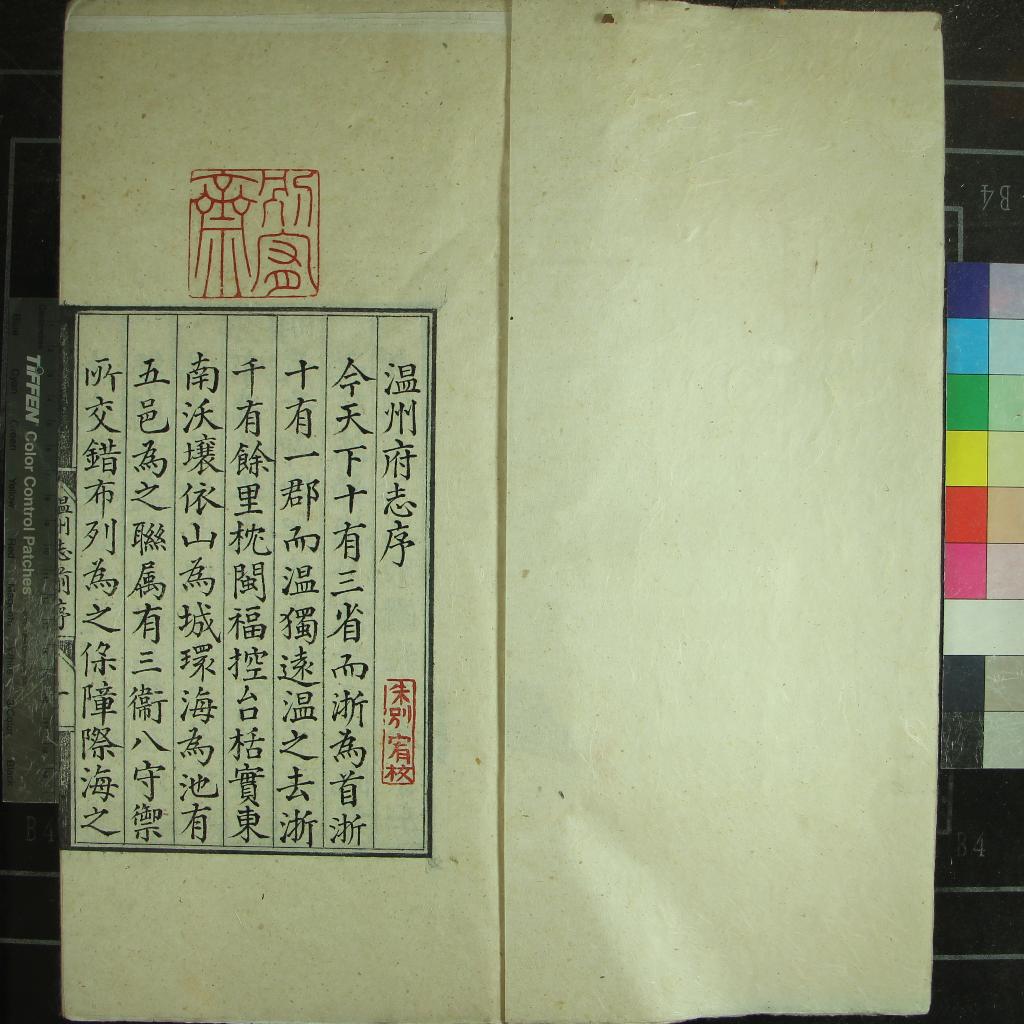 温州府志序
今天下十有三省而浙為首浙
十有一郡而温獨遠温之去浙
千有餘里枕閩福控台栝實東
南沃壤依山為城環海為池有
五邑為之聯属有三衞八守禦
所交錯布列為之保障際海之
朱别宥校
别宥齋
温州志前序
TIFFEN Color Control Patches
B4
B4
B4